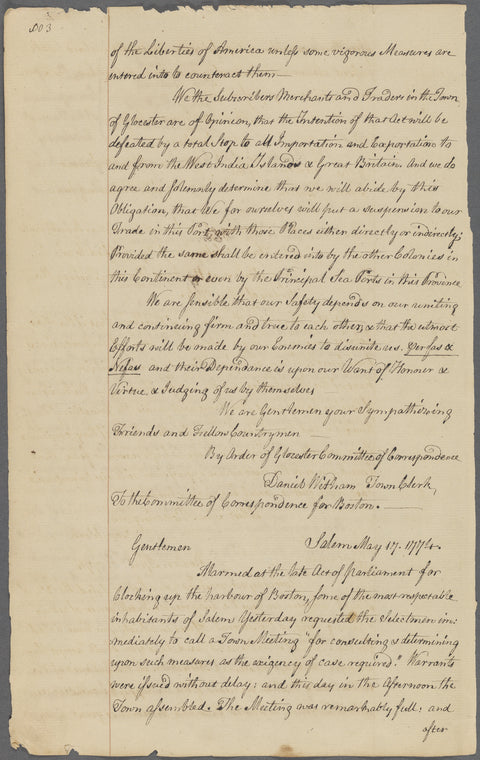 503
of the Liberties of America unless some vigorous Measures are
entered into to counteract them—
We the Subscribers Merchants and Traders in the Town
of Glocester are of Opinion, that the Intention of that Act will be
defeated by a total Stop to all Importation and Exportation to
and from the West India Islands & Great Britain. And we do
agree and solemnly determine that we will abide by this
Obligation, that We for ourselves will put a suspension to our
Trade in this Port, with those Places either directly or indirectly,
Provided the same shall be entered into by the other Colonies in
this Continent or even by the Principal Sea Ports in this Province
We are sensible that our Safety depends on our uniting
and continueing firm and true to each other, & that the utmost
Efforts will be made by our Enemies to disunite us. Per fas &
Nefas and their Dependance is upon our Want of Honour &
Virtue, & Judging of us by themselves—
We are Gentlemen your Sympathizing
Friends and Fellow Countrymen —
By Order of Glocester Committee of Correspondence
Daniel Witham Town Clerk,
To the Committee of Correspondence for Boston. —
Gentlemen Salem May 17. 1774.
Alarmed at the late Act of Parliament for
Blocking up the harbour of Boston, some of the most respectable
inhabitants of Salem Yesterday requested the Selectmen im:
mediately to call a Town Meeting "for consulting & determining
upon such measures as the exigency of case required." Warrants
were issued without delay: and this day in the Afternoon the
Town assembled. The Meeting was remarkably full: and
after